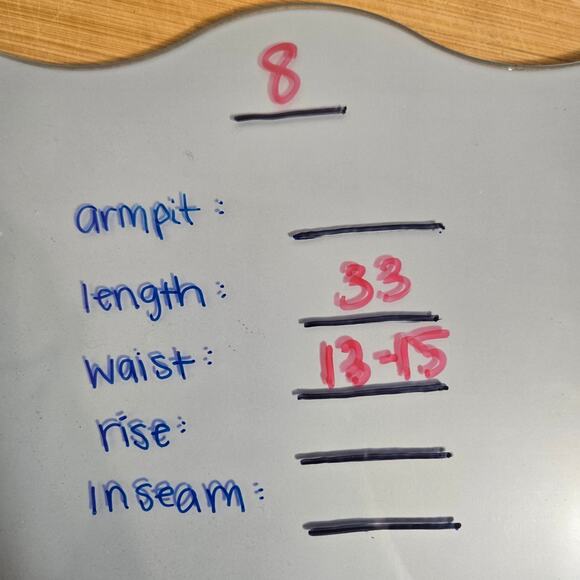 8
armpit:
length: 33
waist: 13-15
rise:
inseam: